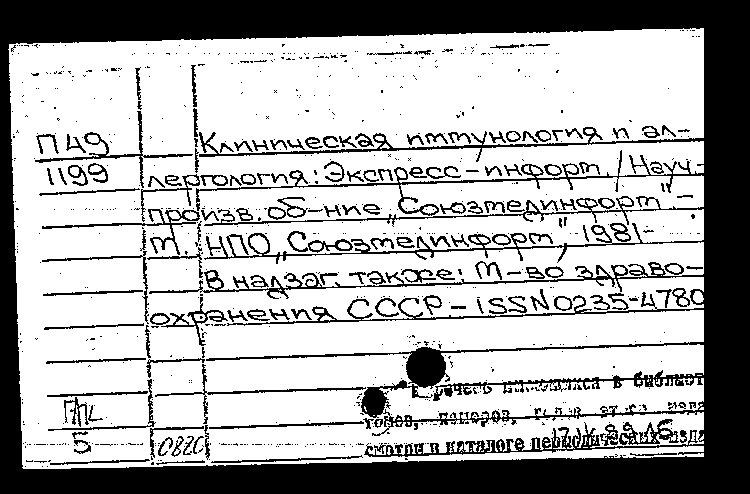 П49 Клиническая иммунология и ал-
1199 лергология: Экспресс-информ. / Науч.-
произв. об-ние „Союзмединформ". -
М. НПО „Союзмединформ", 1981-
В надзаг. также: М-во здраво-
охранения СССР - ISSN 0235-4780
в библиот
томов, номеров,
смотри в каталоге периодических изда
5